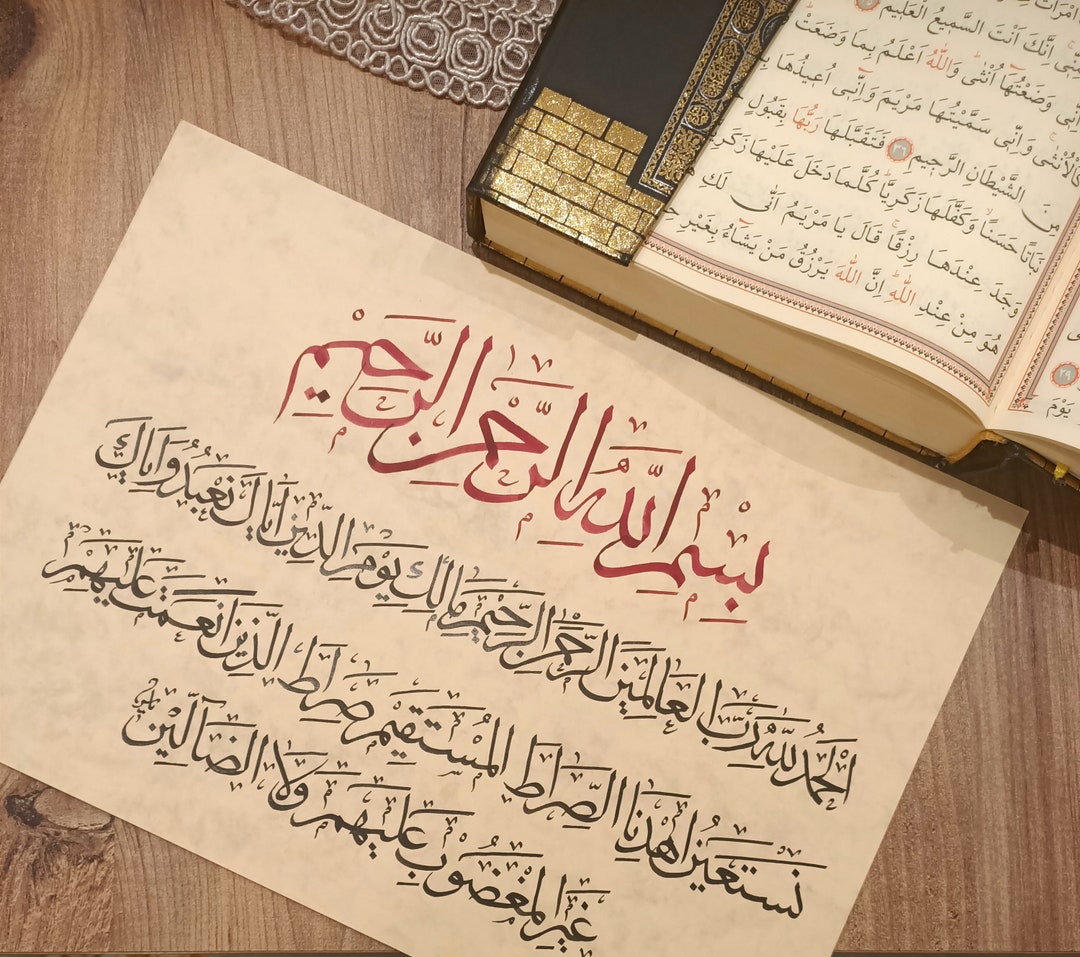 مِنّٖى اِنَّكَ اَنْتَ السَّمٖيعُ الْعَلٖيمُ
اِنّٖى وَضَعْتُهَا اُنْثٰى وَاللّٰهُ اَعْلَمُ بِمَا وَضَعَتْ
كَالْاُنْثٰى وَاِنّٖى سَمَّيْتُهَا مَرْيَمَ وَاِنّٖٓى اُعٖيذُهَا
مِنَ الشَّيْطَانِ الرَّجٖيمِ ٣٦ فَتَقَبَّلَهَا رَبُّهَا بِقَبُولٍ
نَبَاتًا حَسَنًا وَكَفَّلَهَا زَكَرِيَّا كُلَّمَا دَخَلَ عَلَيْهَا
وَجَدَ عِنْدَهَا رِزْقًا قَالَ يَا مَرْيَمُ اَنّٰى لَكِ
هُوَ مِنْ عِنْدِ اللّٰهِ اِنَّ اللّٰهَ يَرْزُقُ مَنْ يَشَٓاءُ بِغَيْرِ
٢٩
يَوْمَ
بِسْمِ اللّٰهِ الرَّحْمٰنِ الرَّحِيْمِ
اَلْحَمْدُ لِلّٰهِ رَبِّ الْعَالَمِينَ الرَّحْمٰنِ الرَّحِيْمِ مَالِكِ يَوْمِ الدِّينِ اِيَّاكَ نَعْبُدُ وَاِيَّاكَ
نَسْتَعِينُ اِهْدِنَا الصِّرَاطَ الْمُسْتَقِيْمَ صِرَاطَ الَّذِينَ اَنْعَمْتَ عَلَيْهِمْ
غَيْرِ الْمَغْضُوْبِ عَلَيْهِمْ وَلَا الضَّآلِّيْنَ